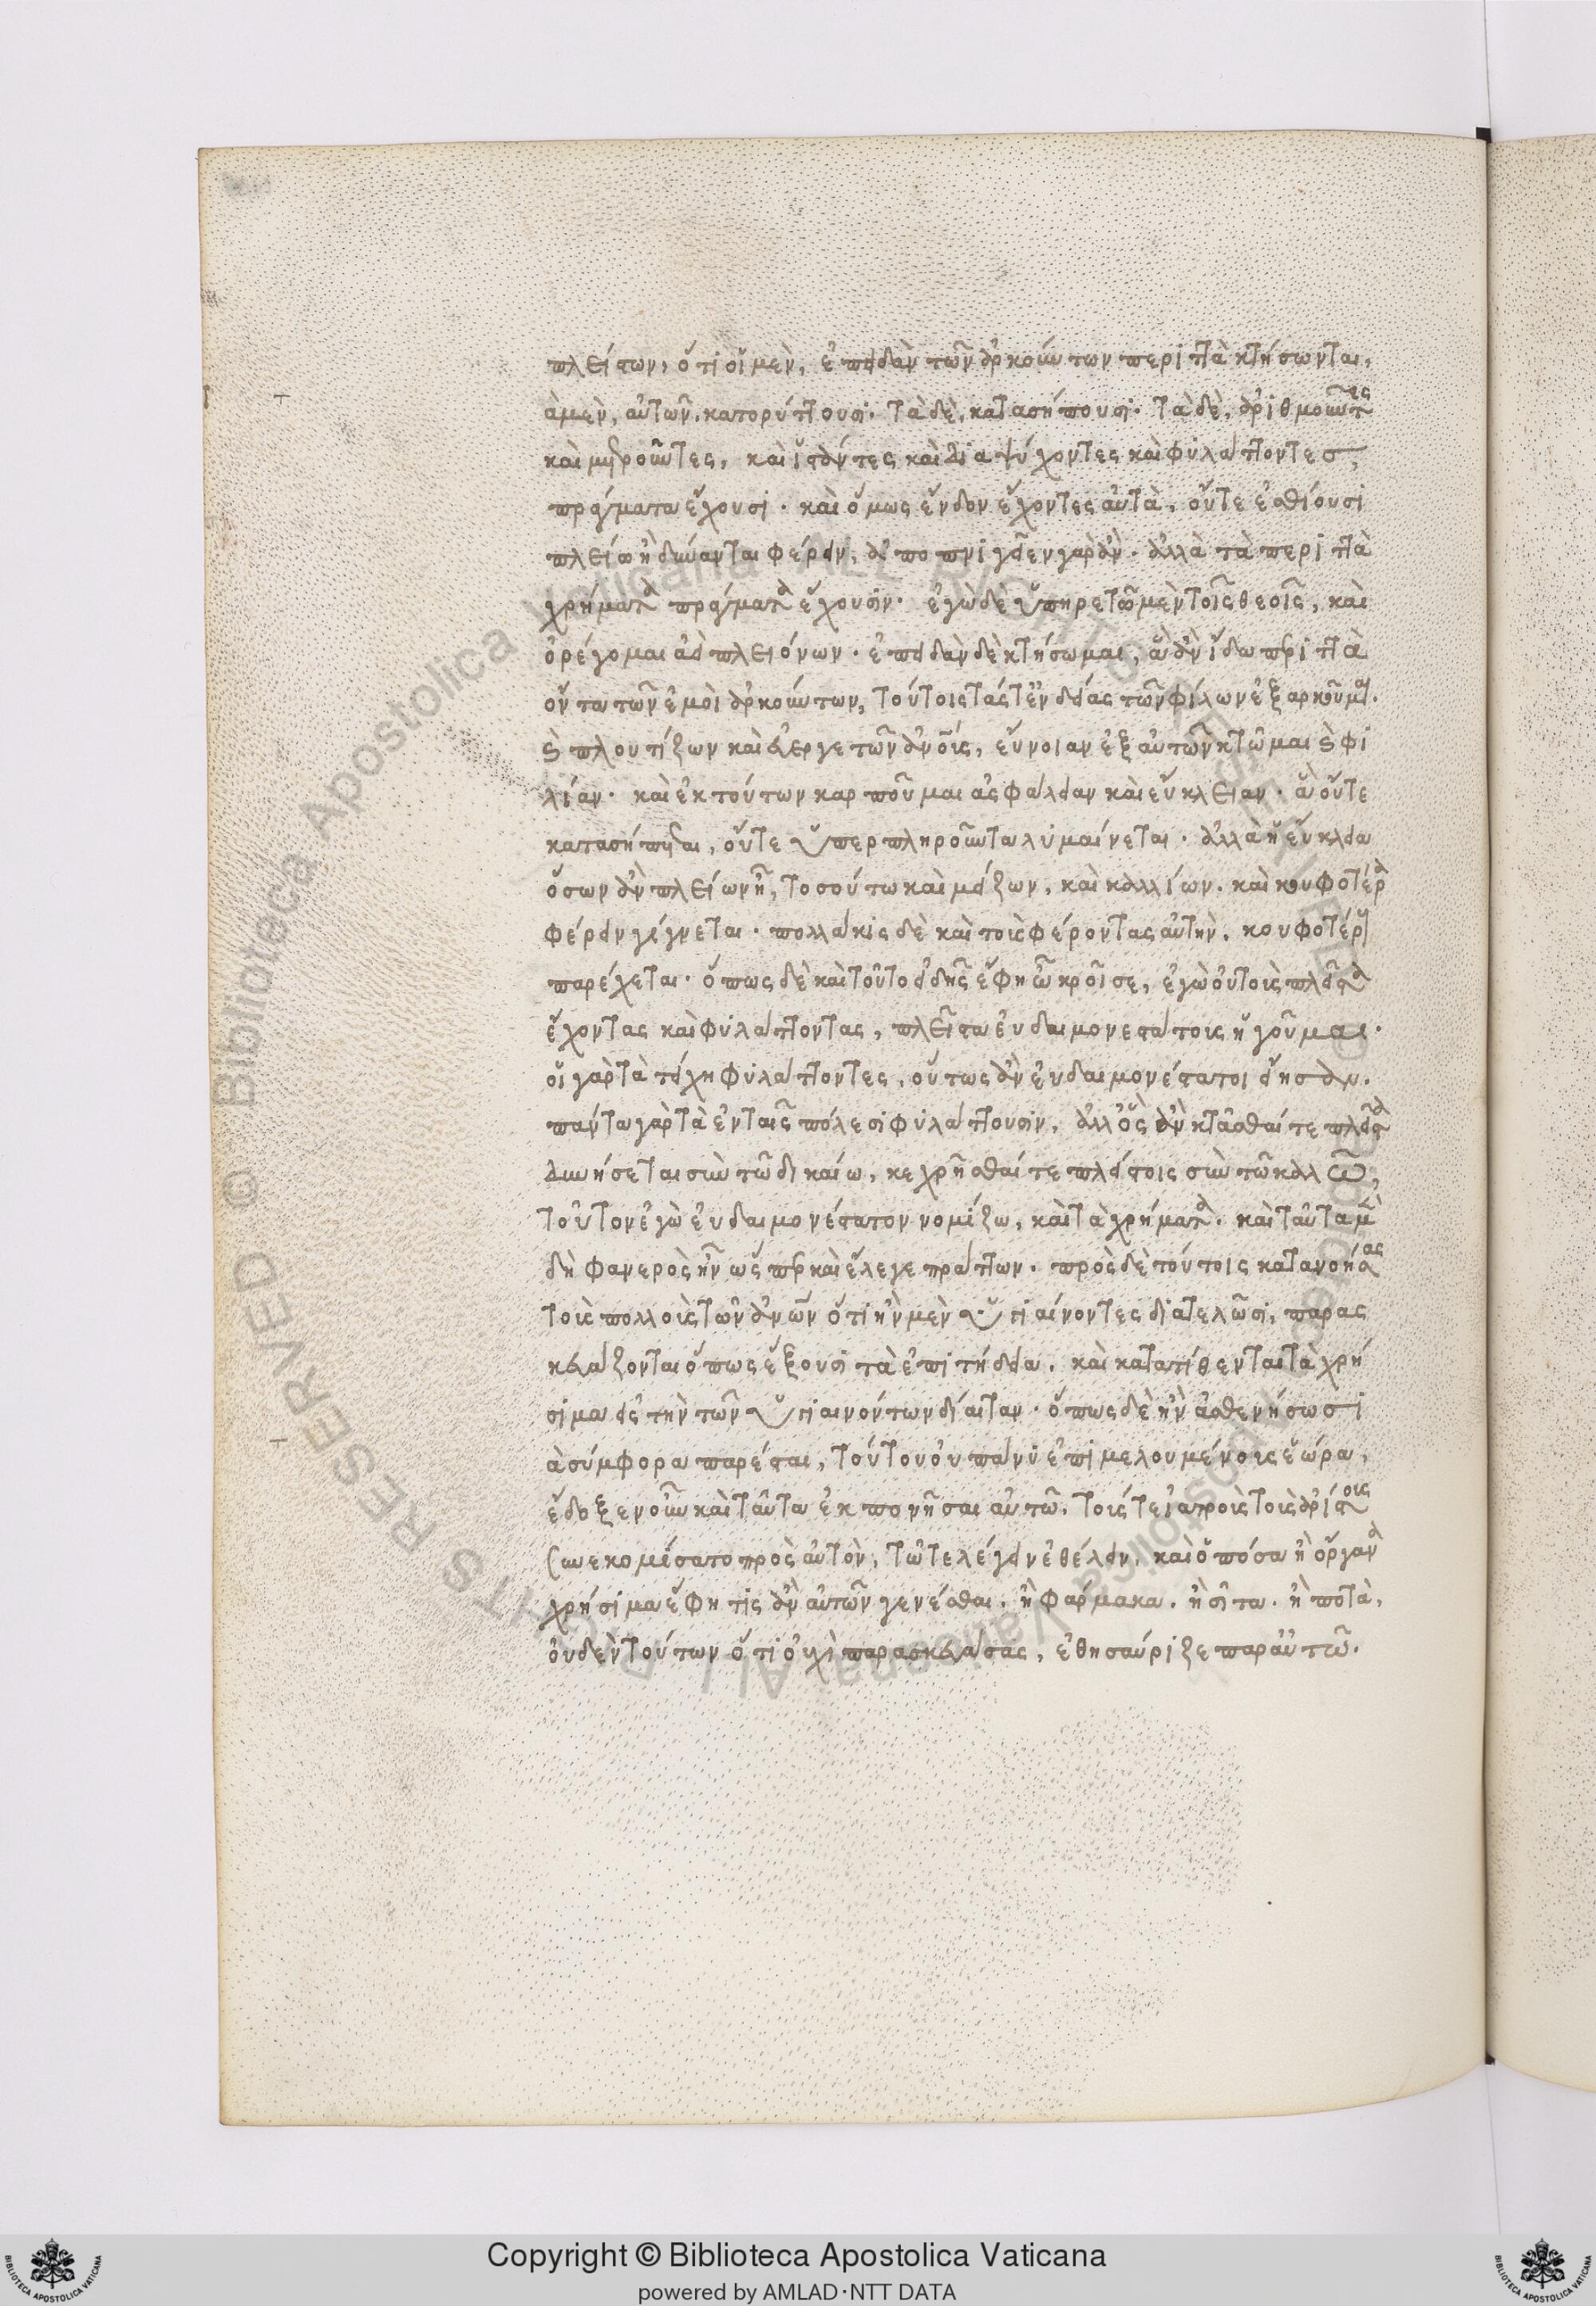 πλείστων, ὅτι οἱ μὲν, ἐπειδὰν τῶν ἀρκούντων περιττὰ κτήσωνται,
ἃ μὲν, αὐτῶν, κατορύττουσι. τὰ δὲ, κατασήπουσι. τὰ δὲ, ἀριθμοῦντες
καὶ μετροῦντες, καὶ ἱστάντες καὶ διαψύχοντες καὶ φυλάττοντες,
πράγματα ἔχουσι. καὶ ὅμως ἔνδον ἔχοντες αὐτὰ, οὔτε ἐσθίουσι
πλείω ἢ δύνανται φέρειν, ἀποπνιγεῖεν γὰρ ἂν. ἀλλὰ τὰ περιττὰ
χρήματα πράγματα ἔχουσιν. ἐγὼ δὲ ὑπηρετῶ μὲν τοῖς θεοῖς, καὶ
ὀρέγομαι ἀεὶ πλειόνων. ἐπειδὰν δὲ κτήσωμαι, ἃ ἂν ἴδω περιττὰ
ὄντα τῶν ἐμοὶ ἀρκούντων, τούτοις τάς τ' ἐνδείας τῶν φίλων ἐξαρκοῦμαι.
καὶ πλουτίζων καὶ εὐεργετῶν ἀνοῖς, εὔνοιαν ἐξ αὐτῶν κτῶμαι καὶ φι
λίαν. καὶ ἐκ τούτων καρποῦμαι ἀσφάλειαν καὶ εὔκλειαν. ἃ οὔτε
κατασήπεται, οὔτε ὑπερπληροῦντα λυμαίνεται. ἀλλὰ ἡ εὔκλεια
ὅσων ἂν πλείων ἦ, τοσούτω καὶ μείζων, καὶ καλλίων. καὶ κουφοτέρα
φέρειν γίγνεται. πολλάκις δὲ καὶ τοὺς φέροντας αὐτὴν, κουφοτέρους
παρέχεται. ὅπως δὲ καὶ τοῦτο εἰδῆς ἔφη ὦ κροῖσε, ἐγὼ οὐ τοὺς πλεῖστα
ἔχοντας καὶ φυλάττοντας, πλεῖστα εὐδαιμονεστάτους ἡγοῦμαι.
οἱ γὰρ τὰ τείχη φυλάττοντες, οὕτως ἂν εὐδαιμονέστατοι εἴησαν.
πάντα γὰρ τὰ ἐν ταῖς πόλεσι φυλάττουσιν, ἀλλ' ὃς ἂν κτᾶσθαί τε πλεῖστα
δυνήσεται σὺν τῶ δικαίω, κεχρῆσθαί τε πλείστοις σὺν τῶ καλῶ,
τοῦτον ἐγὼ εὐδαιμονέστατον νομίζω, καὶ τὰ χρήματα. καὶ ταῦτα μὲν
δὴ φανερὸς ἦν ὥσπερ καὶ ἔλεγε πράττων. πρὸς δὲ τούτοις κατανοήσας
τοὺς πολλοὺς τῶν ἀνων ὅτι ἢν μὲν ὑγιαίνοντες διατελῶσι, παρασ
κευάζονται ὅπως ἕξουσι τὰ ἐπιτήδεια. καὶ κατατίθενται τὰ χρή
σιμα εἰς τὴν τῶν ὑγιαινόντων δίαιταν. ὅπως δὲ ἢν ἀσθενήσωσι
ἃ σύμφορα παρέσται, τούτου οὐ πάνυ ἐπιμελουμένους ἑώρα,
ἔδοξεν οὖν καὶ ταῦτα ἐκπονῆσαι αὐτῶ. τούς τε ἰατροὺς τοὺς ἀρίστους
συνεκομίσατο πρὸς αὐτὸν, τῶ τελέγειν ἐθέλειν, καὶ ὁπόσα ἢ ὄργανα
χρήσιμα ἔφη τις ἂν αὐτῶν γενέσθαι. ἢ φάρμακα. ἢ σῖτα. ἢ ποτὰ,
οὐδὲν τούτων ὅτι οὐχὶ παρασκευάσας, ἐθησαύριζε παρ' αὐτῶ.
Copyright © Biblioteca Apostolica Vaticana
powered by AMLAD·NTT DATA